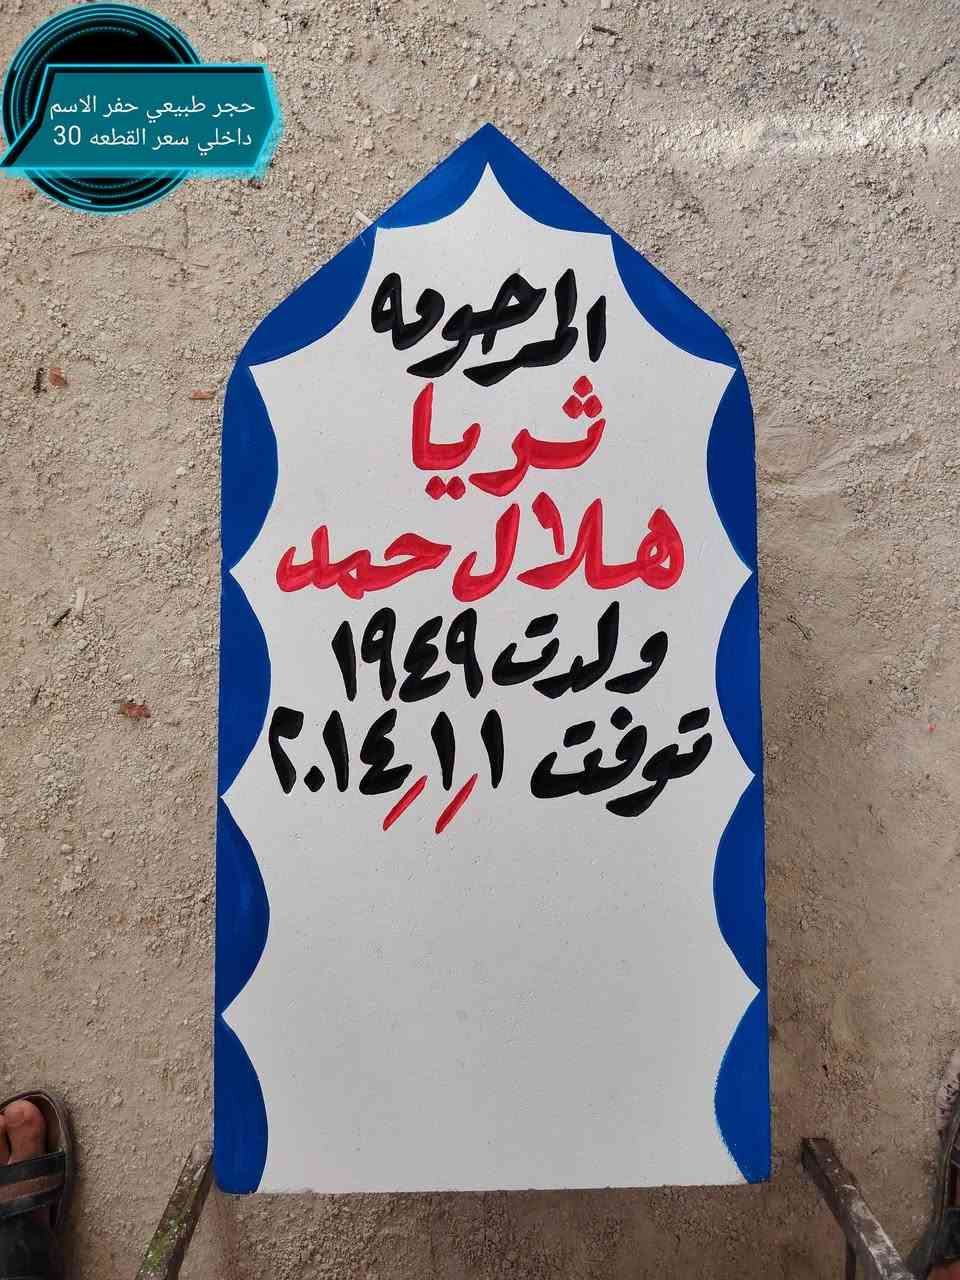 حجر طبيعي حفر الاسم
داخلي سعر القطعه 30
المرحومه
ثريا
هلال حمد
ولدت ١٩٤٩
توفت ١/١/٢٠١٤